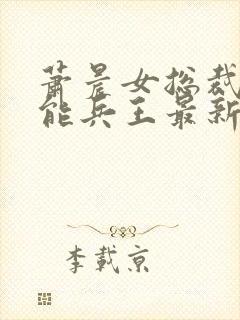 萧晨女总裁
能兵王最新
李载京